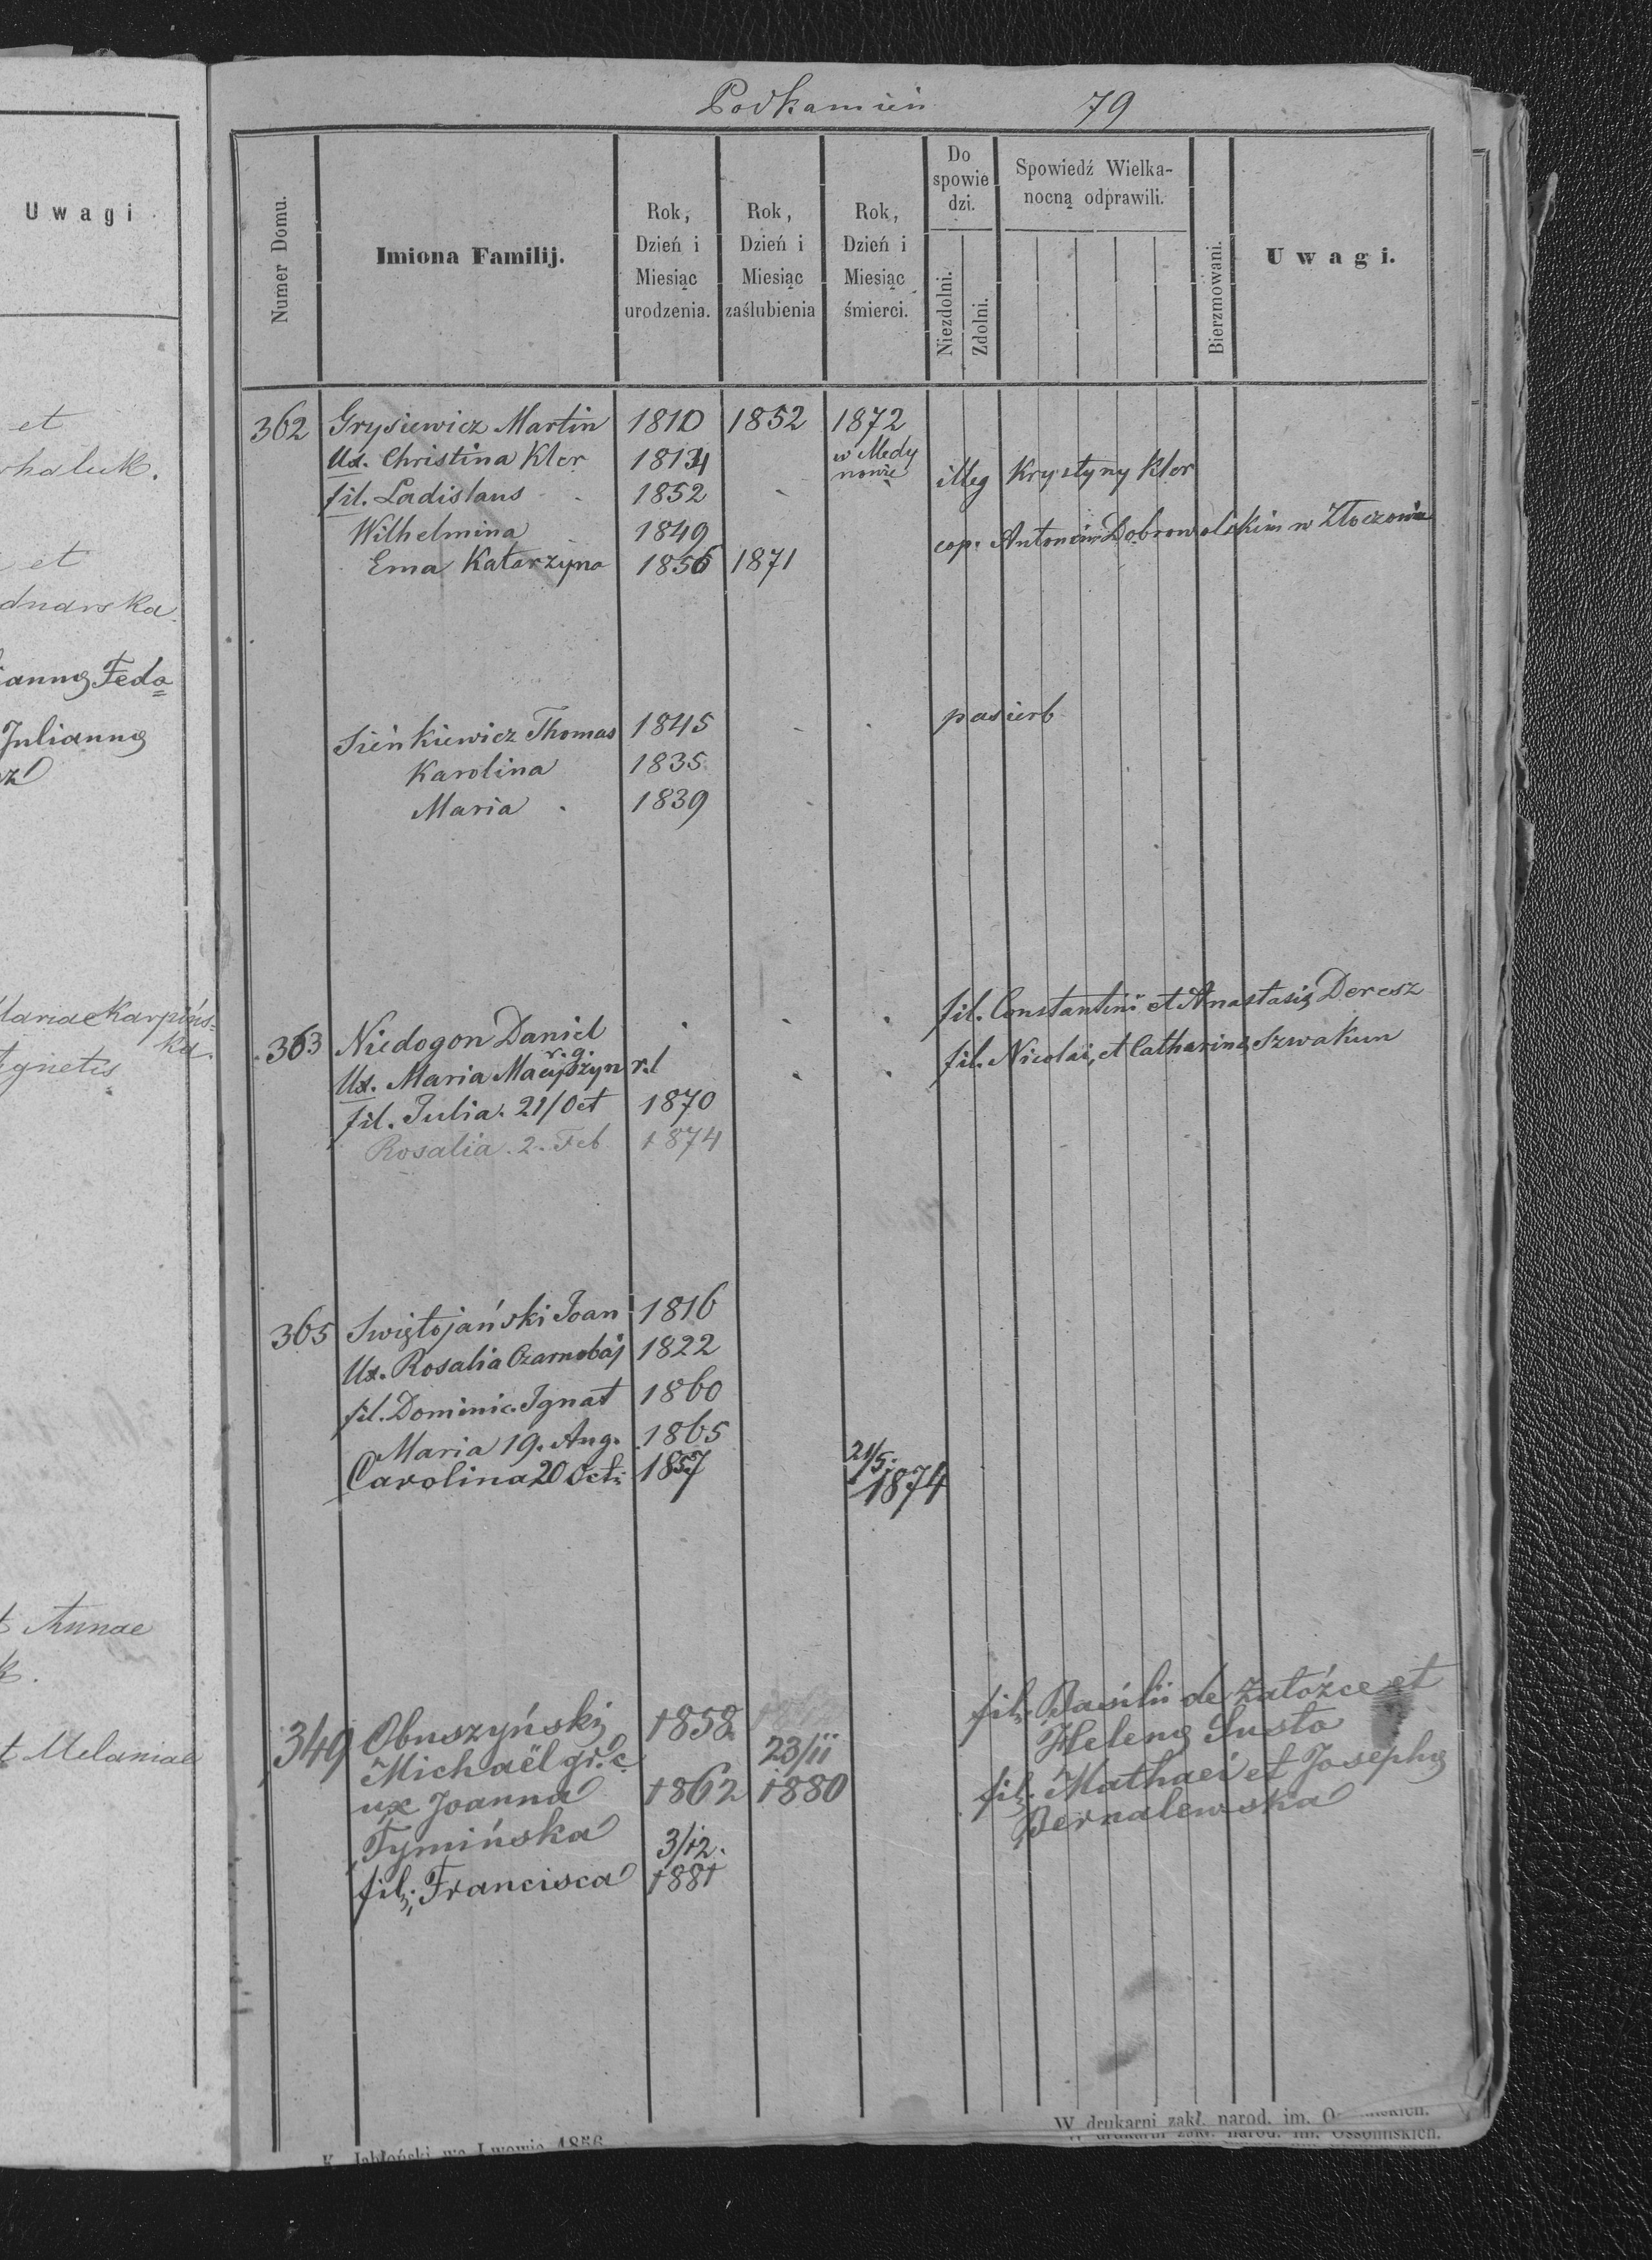 Podkamień 79
Uwagi
Numer Domu.
Imiona Familij.
Rok, Dzień i Miesiąc urodzenia.
Rok, Dzień i Miesiąc zaślubienia
Rok, Dzień i Miesiąc śmierci.
Do spowiedzi.
Niezdolni.
Zdolni.
Spowiedź Wielka-
nocną odprawili.
Bierzmowani.
Uwagi.
et
et
Julianną
Annae
Melaniae
362 Grysiewicz Martin 1810 1852 1872
Ux. Christina Kler 1814 w Medy
nowie
fil. Ladislaus 1852 illeg Krystyny Kler
Wilhelmina 1849
Ema Katarzyna 1856 1871 cop. Antonim Dobrowolskim w Złoczowie
Sieńkiewicz Thomas 1845 pasierb
Karolina 1835
Maria 1839
363 Niedogon Daniel fil. Constantini et Anastasię Deresz
r. g.
Ux. Maria Macyszyn r. l fil. Nicolai, et Catharinę Szwakun
fil. Julia. 21/Oct 1870
Rosalia. 2. Feb 1874
365 Swiętojański Joan 1816
Ux. Rosalia Czarnobaj 1822
fil. Dominic. Ignat 1860
Maria 19. Aug. 1865
Carolina 20 Oct: 1857 21/5. 1874
349 Obuszyński 1858 fil. Basilii de Załoźce et
Michaël gr. c. 23/11 Heleną Susto
ux Joanna 1862 1880 fil. Mathaei et Josephę
Tymińska 3/12. Bernalewska
fil. Francisca 1881
K. Jabłoński we Lwowie 1856
W drukarni zakł. narod. im.
W drukarni zakł. narod. im. Ossolińskich.